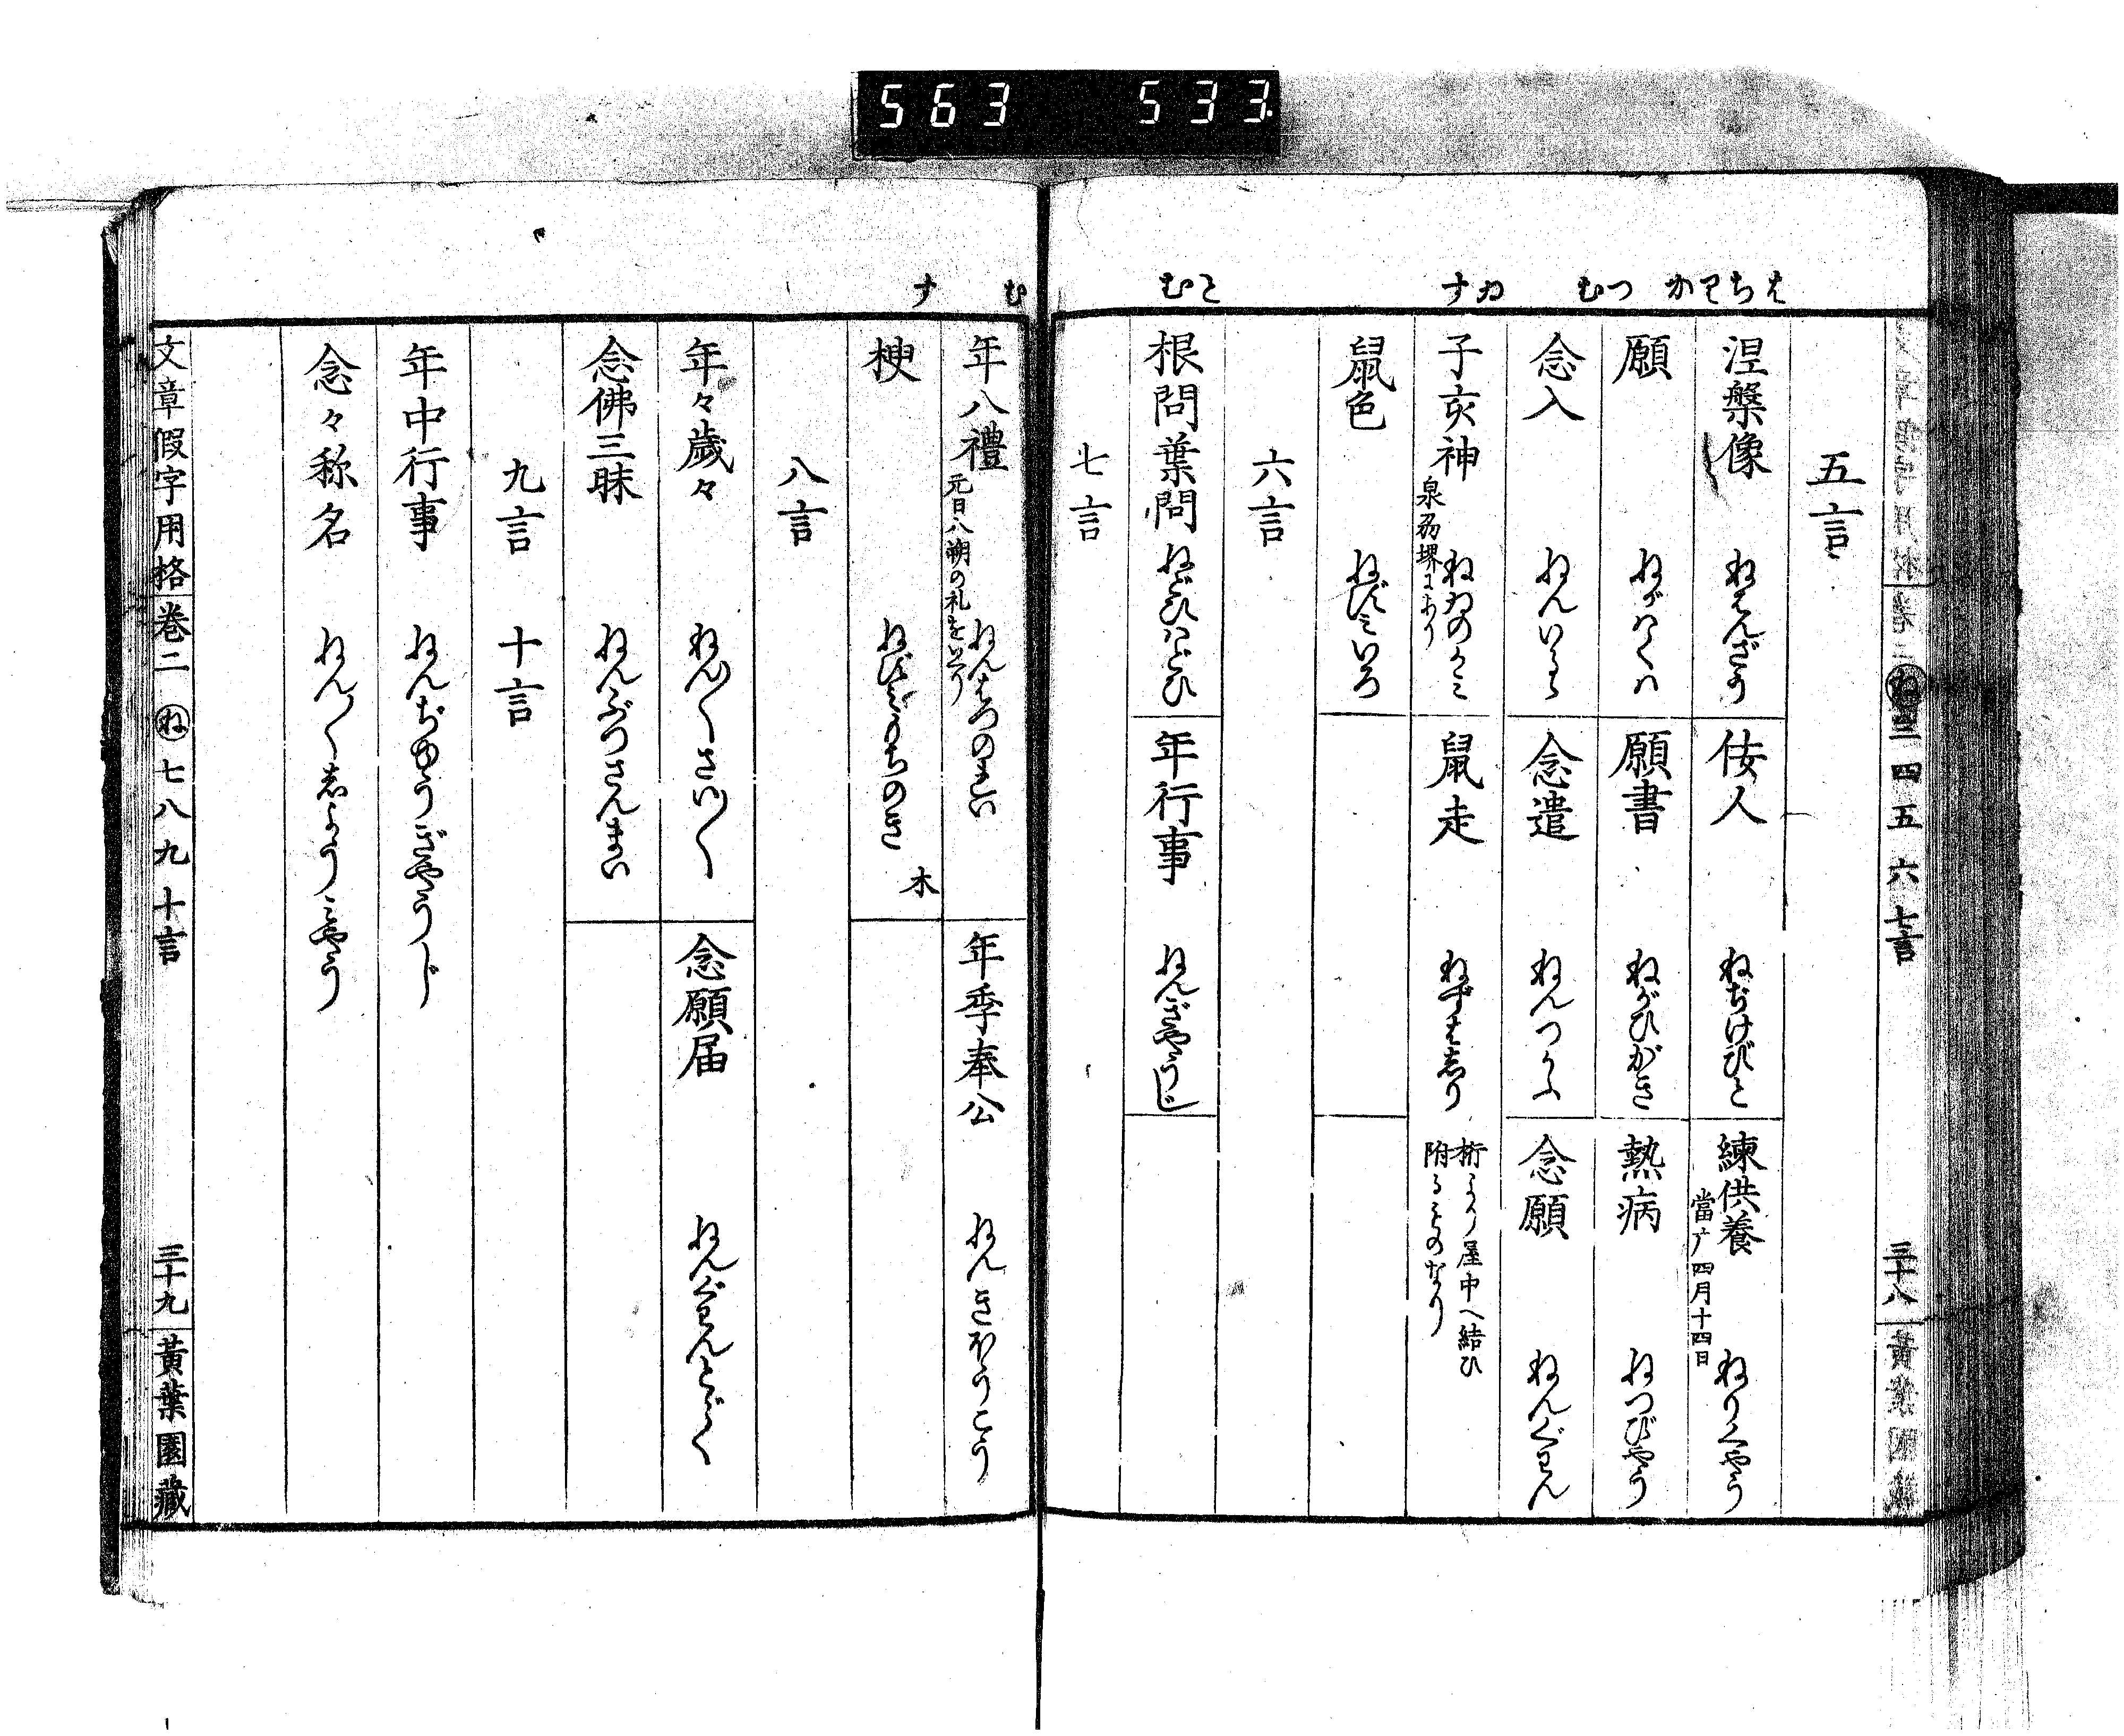 563 533
はちりか
つむ
ゐす
こむ
五言
涅槃像 ねはんざう
佞人 ねぢけびと
練供養 當广四月十四日 ねりくやう
願 ねがはくハ
願書 ねがひがき
熱病 ねつびやう
念入 ねんいる
念遣 ねんつかふ
念願 ねんぐわん
子亥神 泉刕堺にあり ねゐのかミ
鼠走 ねずはしり 桁より屋中へ結ひ
附るものなり
鼠色 ねずミいろ
六言
根問葉問 ねどひはどひ
年行事 ねんぎやうじ
七言
三十八
む
す
年八禮 元日八朔の礼をいふ ねんはつのれい
年季奉公 ねんきほうこう
楰 ねずミもちのき 木
八言
年々歳々 ねん〳〵さい〳〵
念願届 ねんぐわんとゞく
念佛三昧 ねんぶつさんまい
九言 十言
年中行事 ねんぢゆうぎやうじ
念々称名 ねん〳〵しようミやう
文章假字用格 巻二 ね 七八九十言 三十九 黄葉園藏